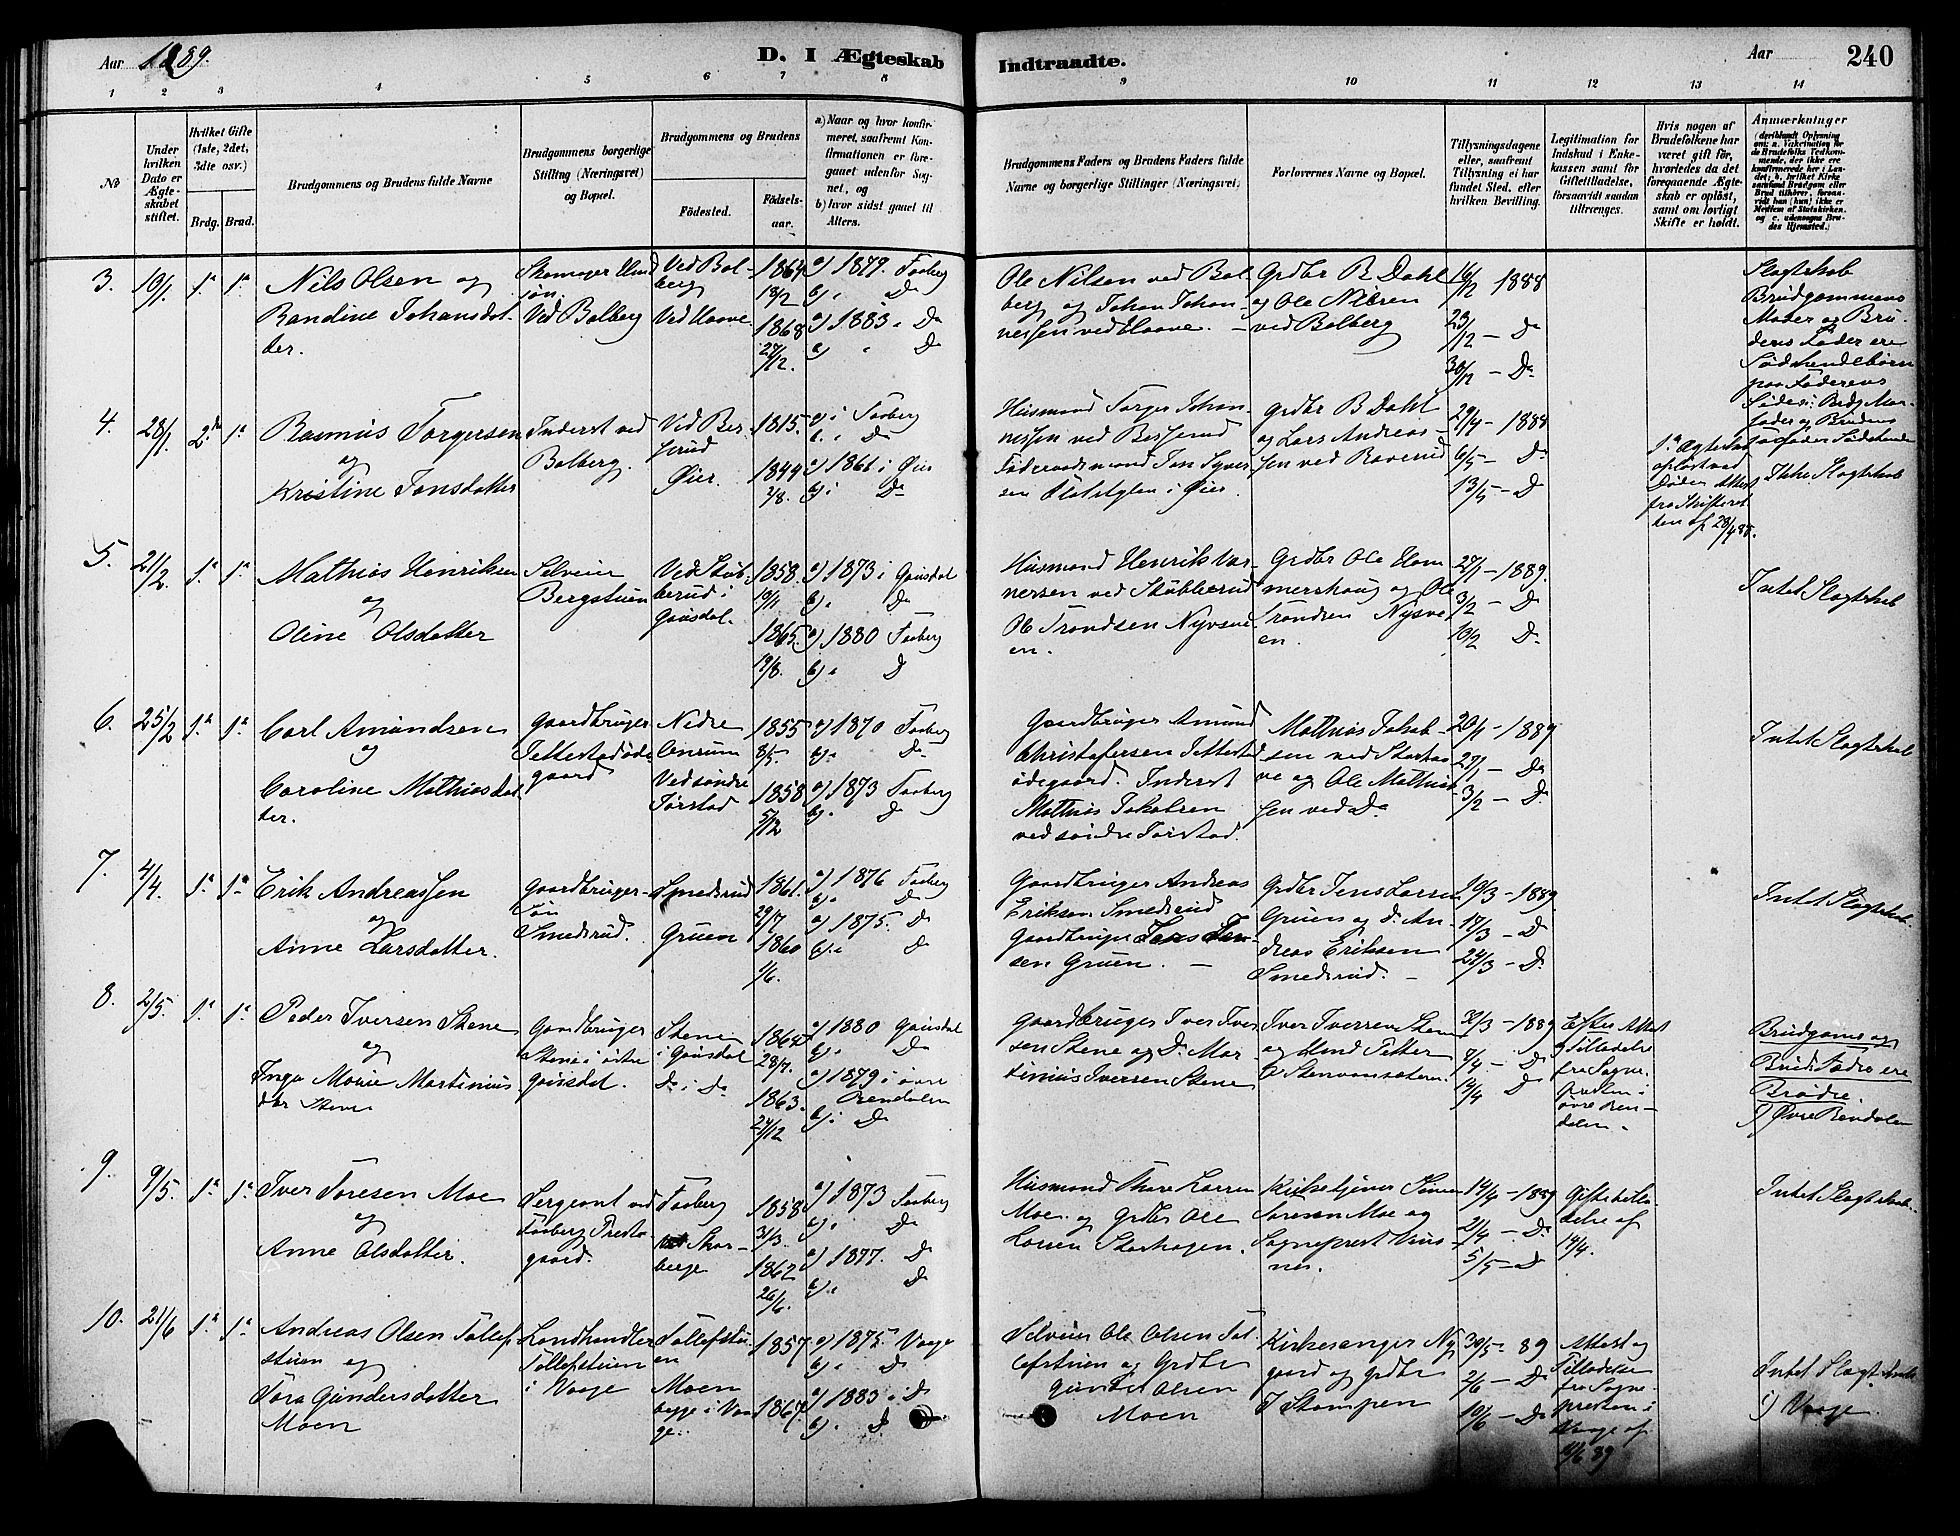 Aar 1889.
D. I Ægteskab
Indtraadte.
Aar
240
1 2 3 4 5 6 7 8 9 10 11 12 13 14
No
Under
hvilken
Dato er
Ægte-
skabet
stiftet.
Hvilket Gifte
(1ste, 2det,
3dte osv.)
Brdg. Brud.
Brudgommens og Brudens fulde Navne
Brudgommens borgerlige
Stilling (Næringsvei)
og Bopæl.
Brudgommens og Brudens
Fødested.
Fødsels-
aar.
a) Naar og hvor konfir-
meret, saafremt Kon-
firmationen er fore-
gaaet udenfor Sog-
net, og
b) hvor sidst gaaet til
Alters.
Brudgommens Faders og Brudens Faders fulde
Navne og borgerlige Stillinger (Næringsvei)
Forlovernes Navne og Bopæl.
Tillysningsdagene
eller, saafremt
Tillysning ei har
fundet Sted, efter
hvilken Bevilling.
Legitimation for
Indskud i Enke-
kassen samt for
Giftetilladelse,
forsaavidt saadan
tiltrænges.
Hvis nogen af
Brudefolkene har
været gift før,
hvorledes da det
foregaaende Ægte-
skab er opløst,
samt om lovligt
Skifte er holdt.
Anmærkninger
3. 10/1. 1ª 1ª
Nils Olsen og
Randine Johansdat-
ter.
Ved Bolberg
Ved Bol-
berg
1864
18/2
1868
27/12.
a) 1879. Faaberg
b) " Do
a) 1883. " Do
b) " Do
Ole Nilsen ved Bol-
berg og Johan Johan-
nessen ved Haave.
Grdbr B Dahl
og Ole Nilsen
ved Bolberg
16/12 1888
23/12 — Do
30/12 — Do
Slagtskab
Brudgommens
Moder og Bru-
dens Fader ere
Sødskendebørn
paa Faderens
4. 28/1. 2den 1ª
Rasmus Torgersen
og
Kristine Jonsdatter
Inderst ved
Bolberg.
Øier.
1815.
1849
2/8.
a) i Faaberg
b) i Do
a) 1861 i Øier
b) i Do
Husmand Torger Johan-
nessen ved
i Øier.
Grdbr B Dahl
og Lars Andreas-
sen ved
29/4 — 1888
6/5 — Do
13/5 — D
1ª Ægteskab
opløst ved
Døden Attest
fra Skifteret-
ten af 28/4 88.
Ikke Slagtskab
5. 21/2. 1ª 1ª
Mathias Henriksen
og
Oline Olsdatter
Selveier
Bergstuen
Ved Stub-
berud i
Gausdal.
1858.
19/1
1865.
19/8.
a) 1873 i Gausdal
b) " Do
a) 1880 Faaberg
b) " D
Husmand Henrik Iver-
nersen ved Stubberud
Ole Trondsen Nysve-
en.
Grdbr Ole Ham
mershaug og Ole
Trondsen Nysve-
en.
27/1 — 1889.
3/2 — D
10/2 D.
Intet Slagtskab
6. 25/2 1ª 1ª
Carl Amundsen
og
Caroline Mathiasdat
ter.
Gaardbruger
Jettestadøde
gaard
Nedre
Ved søndre
Jørstad
1855
8/5.
1858
5/12
a) 1870 Faaberg
b) " Do
a) 1873 Faaberg
b) " Do
Gaardbruger Amund
Christofersen Jettestad
ødegaard. Inderst
Mathias Jakobsen
ved søndre Jørstad.
Mathias Jakob-
sen ved Storha-
ve og Ole Mathias-
sen ved Do
20/1 — 1889
27/1 — Do
3/2 — D.
Intet Slagtskab
7. 4/4. 1ª 1ª
Erik Andreassen
og
Anne Larsdatter.
Gaardbruger-
søn
Smedsrud.
Smedsrud
Gruen
1861.
29/7
1860
1/6.
a) 1876 Faaberg
b) " Do
a) 1875. D
b) " D
Gaardbruger Andreas
Eriksen Smedsrud
Gaardbruger
sen Gruen. —
Grdbr Jens Larsen
Gruen og do An-
dreas Eriksen
Smedsrud. —
10/3 — 1889.
17/3 — D
24/3 — D.
Intet Slagtskab.
8. 2/5. 1ª 1ª
Peder Iversen Stene
og
Inga Marie Martinius
dtr Stene
Gaardbruger
Stene i østre
Gausdal.
Stene
i Gausdal
Do i Do
1864
28/7.
1863.
27/12
a) 1880 Gausdal
b) " Do
a) 1879 i øvre
Rendalen
b) i D
Gaardbruger Iver Iver
sen Stene og D. Mar-
tinius Iversen Stene
Iver Iversen Stene
31/3 — 1889
7/4 — D
14/4 D
Efter Attest
& Tilladelse
fra Sogne-
presten i
øvre Ren-
dalen.
Brudgoms og
Bruds Fædre ere
Brødre.
i) Øvre Rendalen
9. 9/5. 1ª 1ª
Iver Toresen Moe
og
Anne Olsdatter.
Sergeant ved
Faaberg Preste-
gaard.
Faaberg
1858
31/3.
1862
26/6.
a) 1873 Faaberg
b) " Do
a) 1877. D
b) " D
Husmand Thore Larsen
Moe og Grdbr Ole
Larsen Storhagen.
Kirketjener Simen
Toresen Moe og
Sogneprest
14/4 — 1889
21/4 — D.
5/5 — D
Giftetilla-
delse af
14/4.
Intet Slagtskab.
10. 21/6 1ª 1ª
Andreas Olsen Tollef-
stuen og
Tora Gundersdatter
Moen
Landhandler
Tollefstuen
i Vaage
Tollefstu-
en
Moen
bygge i Vaa-
ge.
1857
1867.
a) 1875. Vaage
b) " D
a) 1883 i D
b) . D
Selveier Ole Olsen Tol-
lefstuen og Grdbr
Gunder Olsen
Moen
Kirkesanger Ny
gaard og Grdbr
J Stampen
30/5 — 89
2/6 — D
10/6 — Do
Attest og
Tilladelse
fra Sogne-
presten i
Vaage af
89
Intet Slagtskab
i) Vaage.